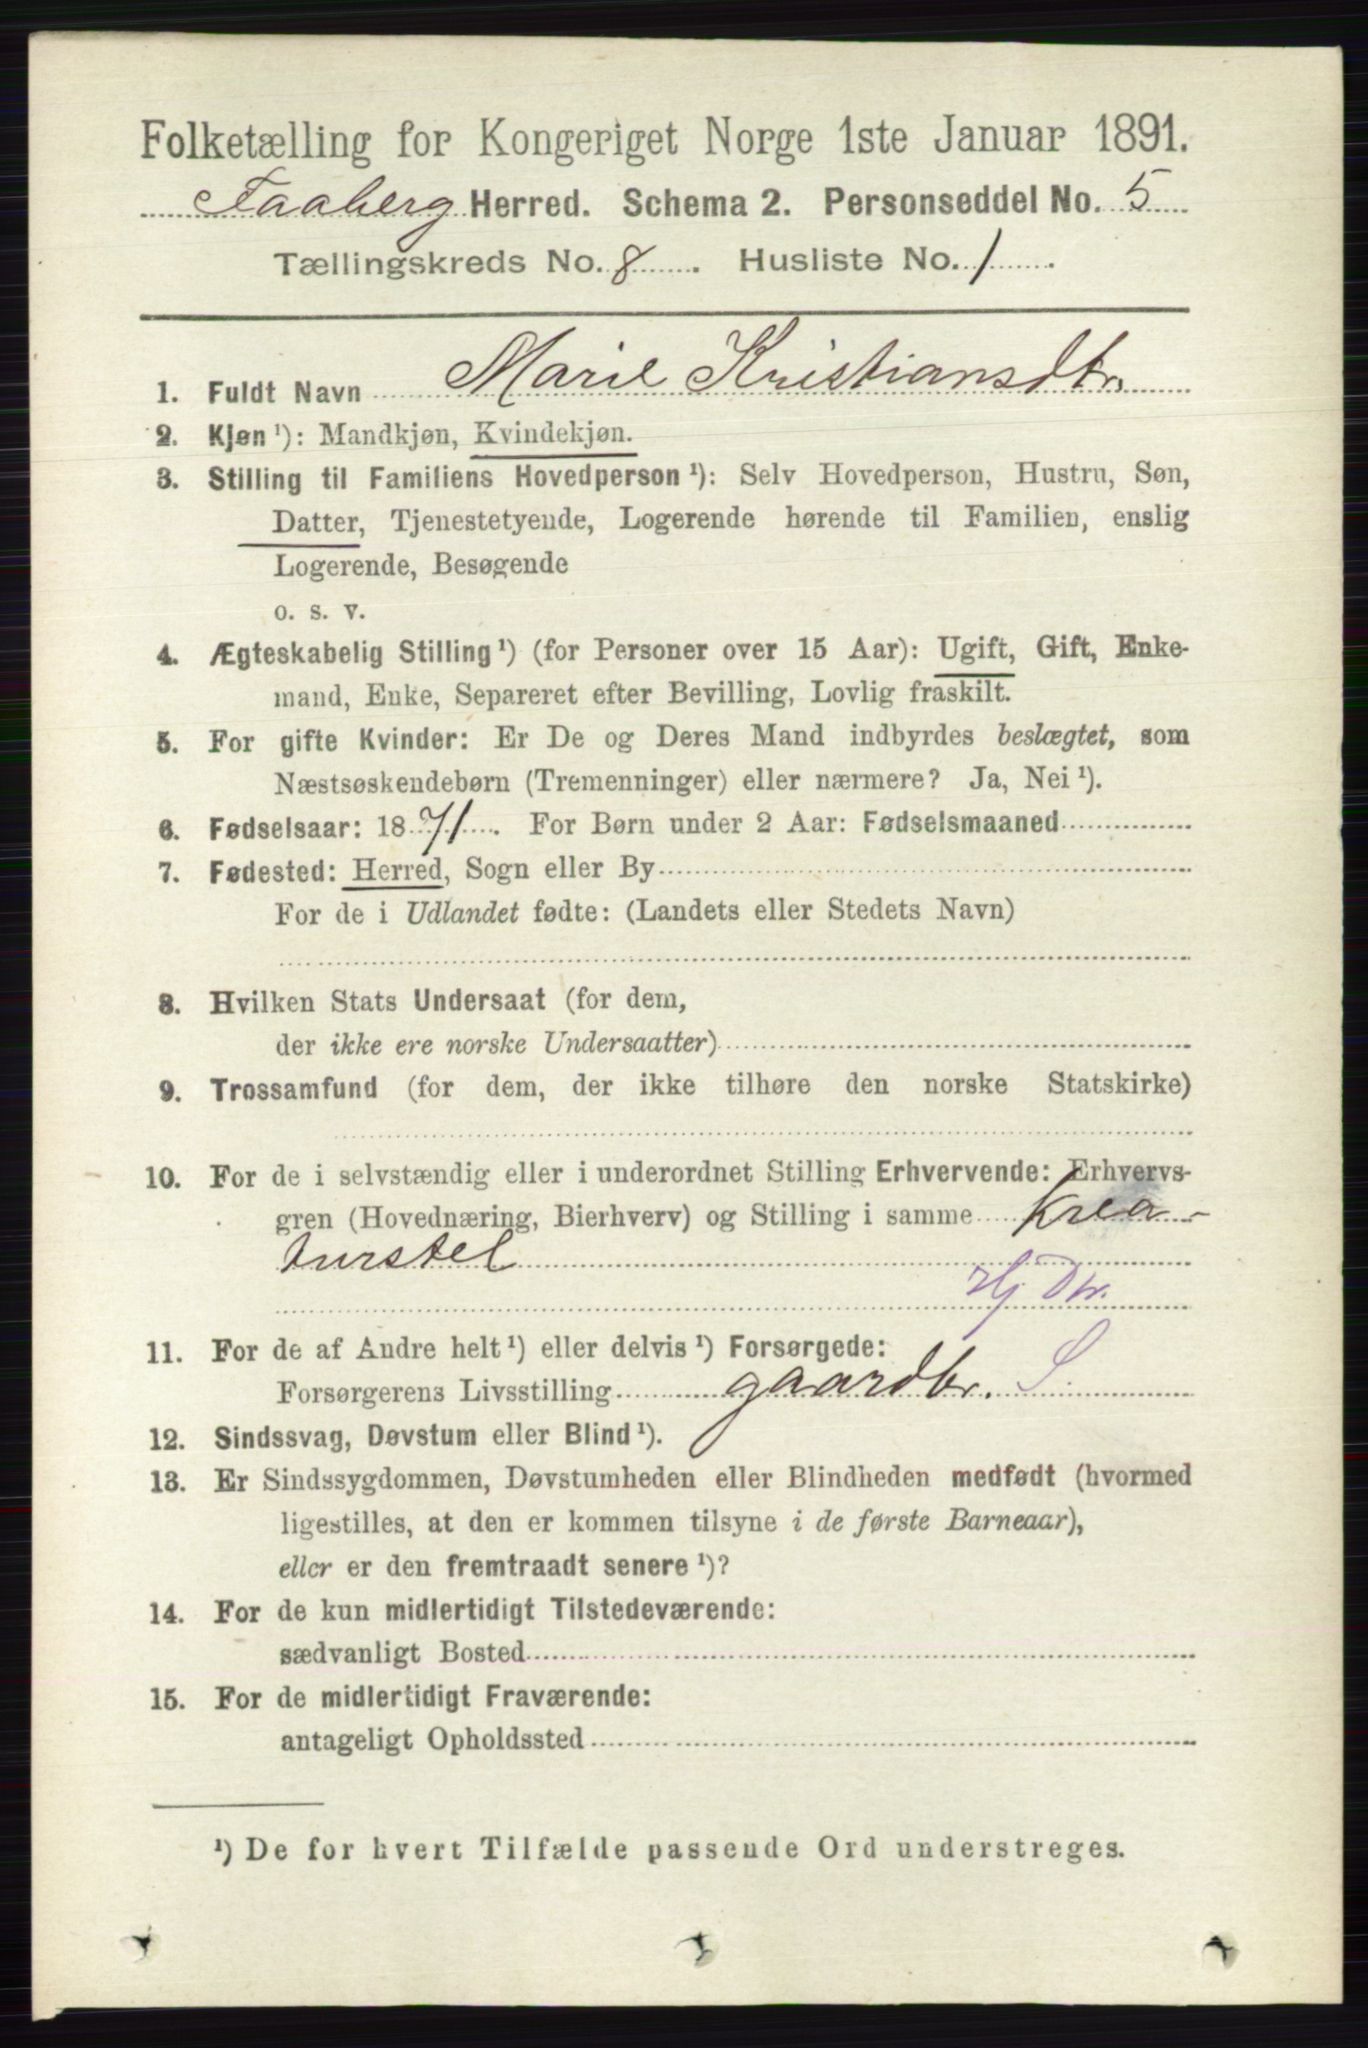 Folketælling for Kongeriget Norge 1ste Januar 1891.
Faaberg Herred. Schema 2. Personseddel No. 5
Tællingskreds No. 8. Husliste No. 1.
1. Fuldt Navn Marie Kristiansdtr.
2. Kjøn ¹): Mandkjøn, Kvindekjøn.
3. Stilling til Familiens Hovedperson ¹): Selv Hovedperson, Hustru, Søn,
Datter, Tjenestetyende, Logerende hørende til Familien, enslig
Logerende, Besøgende
o. s. v.
4. Ægteskabelig Stilling ¹) (for Personer over 15 Aar): Ugift, Gift, Enke-
mand, Enke, Separeret efter Bevilling, Lovlig fraskilt.
5. For gifte Kvinder: Er De og Deres Mand indbyrdes beslægtet, som
Næstsøskendebørn (Tremenninger) eller nærmere? Ja, Nei ¹).
6. Fødselsaar: 1871. For Børn under 2 Aar: Fødselsmaaned
7. Fødested: Herred, Sogn eller By
For de i Udlandet fødte: (Landets eller Stedets Navn)
8. Hvilken Stats Undersaat (for dem,
der ikke ere norske Undersaatter)
9. Trossamfund (for dem, der ikke tilhøre den norske Statskirke)
10. For de i selvstændig eller i underordnet Stilling Erhvervende: Erhvervs-
gren (Hovednæring, Bierhverv) og Stilling i samme Krea-
turstel
Hj. Dtr.
11. For de af Andre helt ¹) eller delvis ¹) Forsørgede:
Forsørgerens Livsstilling gaardbr. S.
12. Sindssvag, Døvstum eller Blind ¹).
13. Er Sindssygdommen, Døvstumheden eller Blindheden medfødt (hvormed
ligestilles, at den er kommen tilsyne i de første Barneaar),
eller er den fremtraadt senere ¹)?
14. For de kun midlertidigt Tilstedeværende:
sædvanligt Bosted
15. For de midlertidigt Fraværende:
antageligt Opholdssted
¹) De for hvert Tilfælde passende Ord understreges.